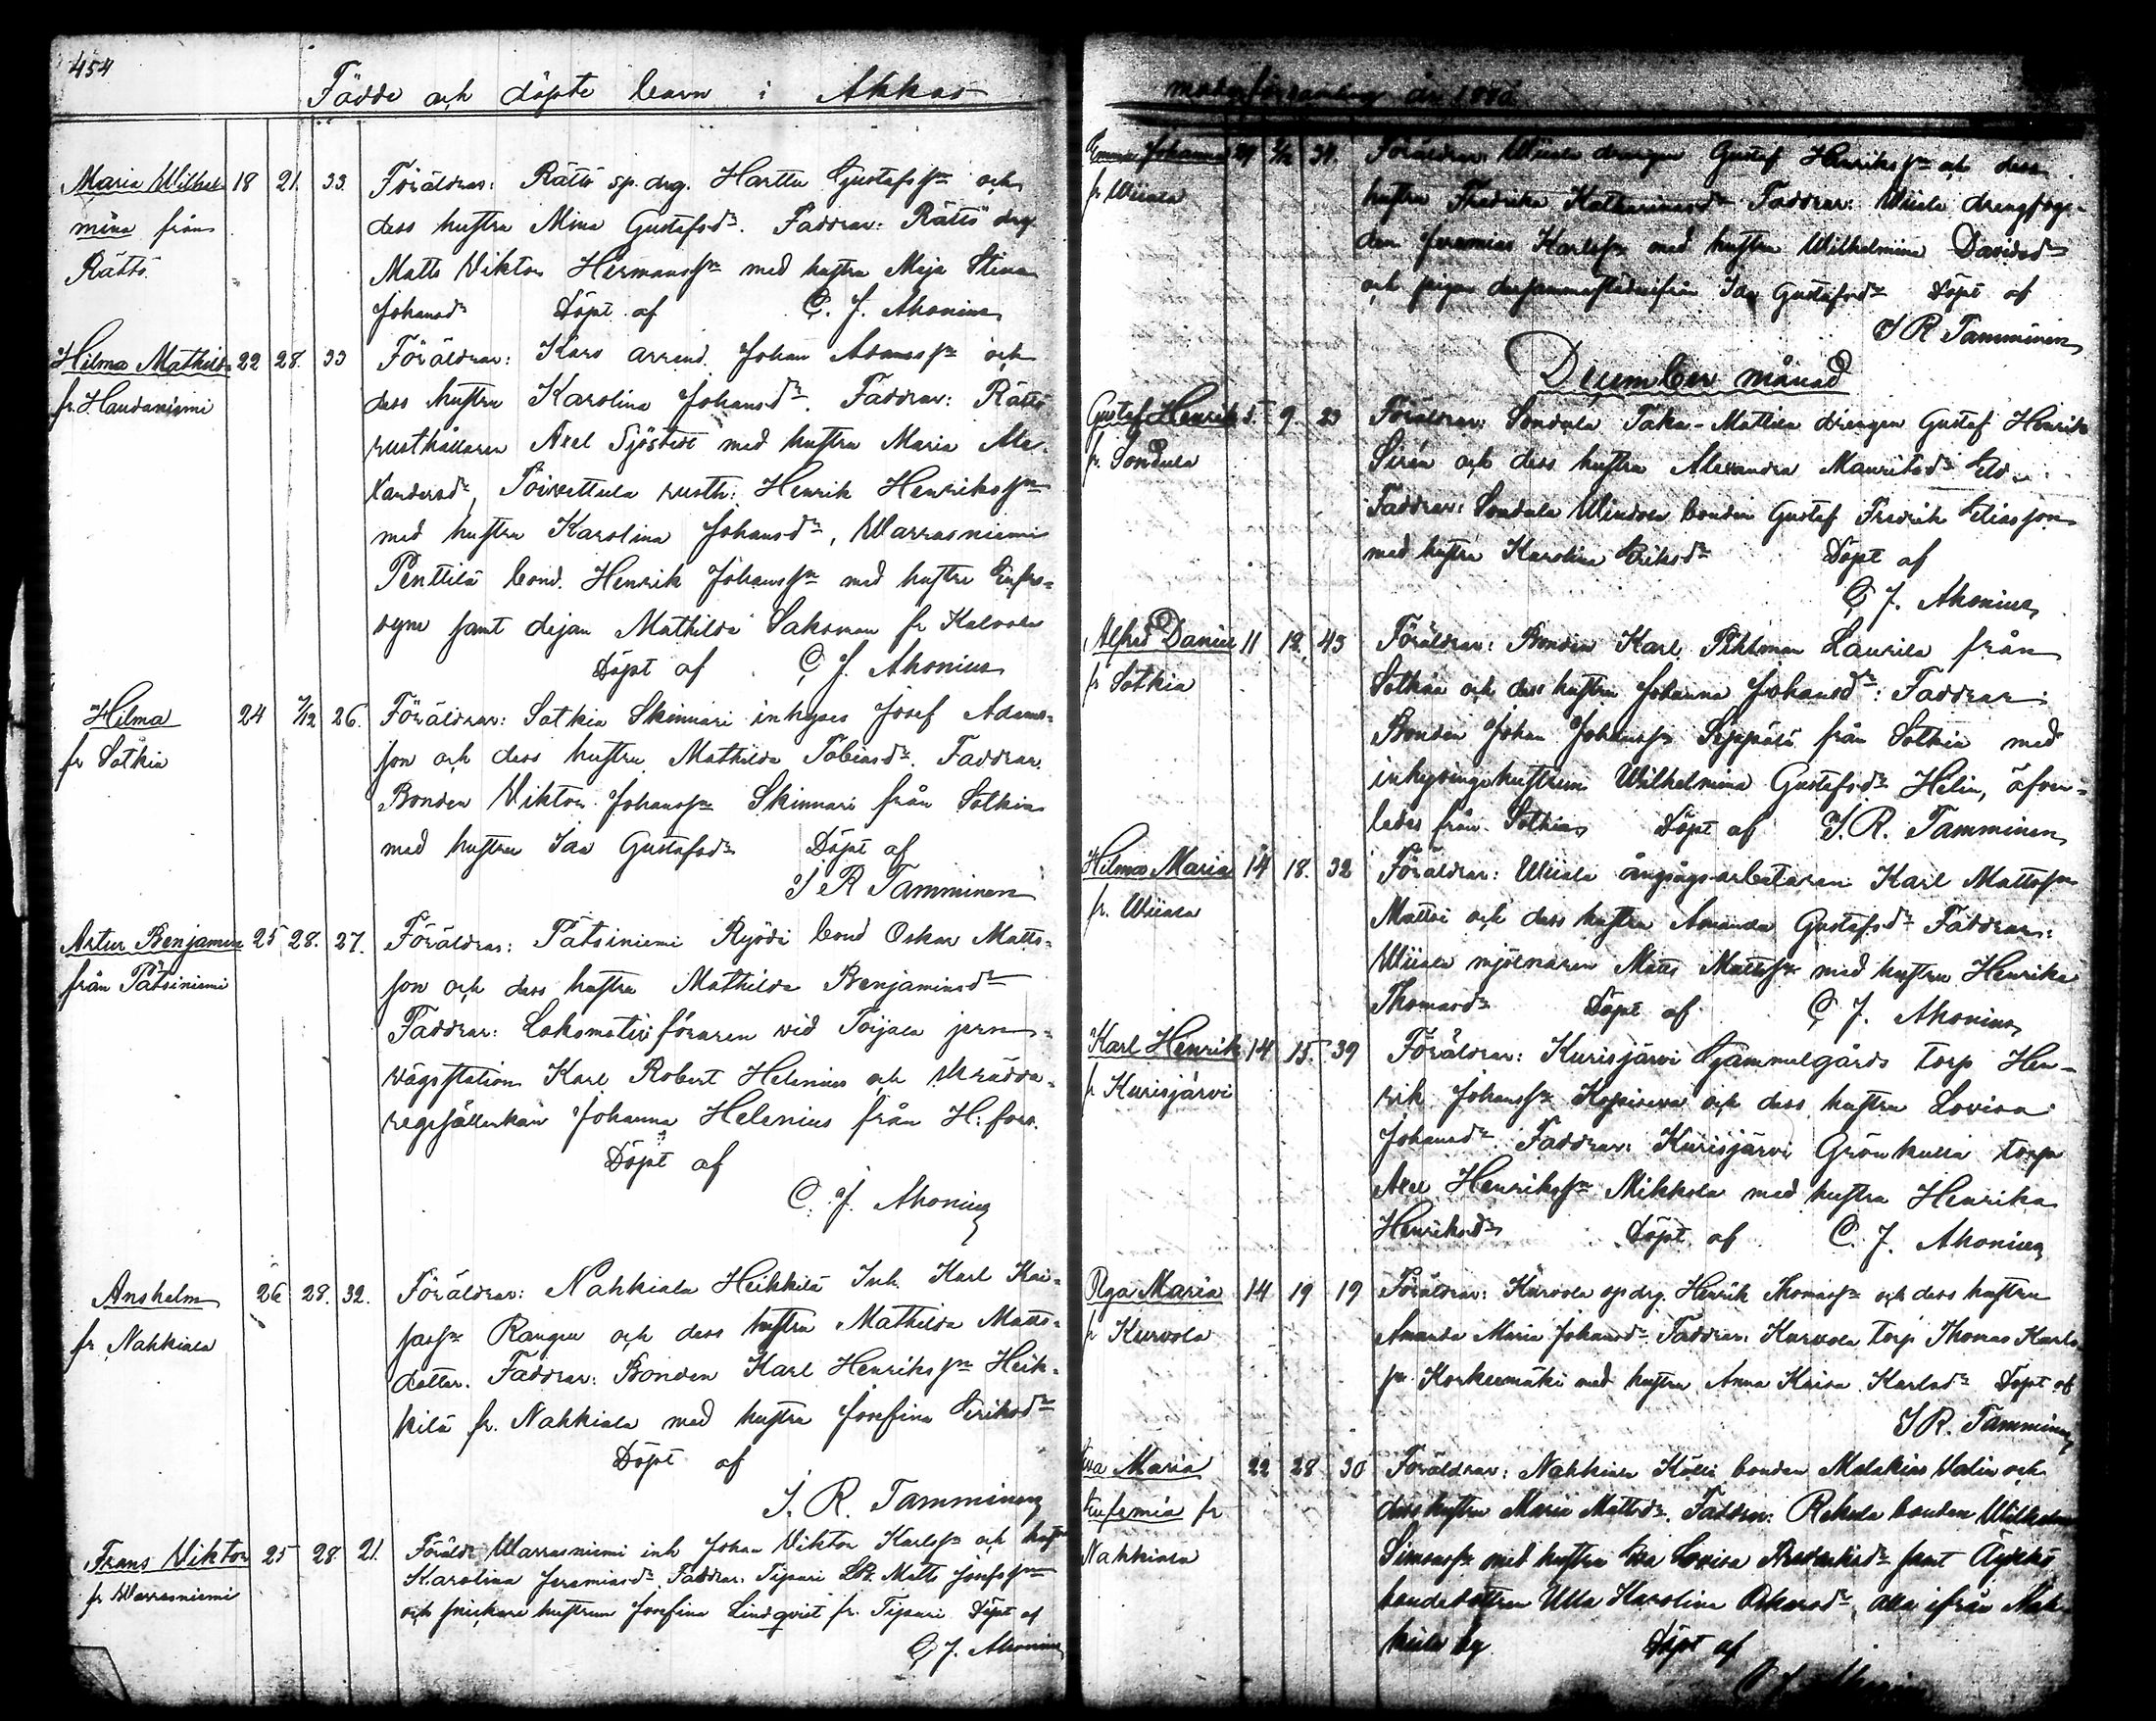 454
Födde och döpte barn i Akkas
Maria Wilhel 18 21. 33. Föräldrar: Rättö sp. drg. Hartta Gustafssn och
mina från dess hustru Mina Gustafsdr. Faddrar: Rättö drg
Rättö. Matts Viktor Hermanssn med hustru Maja Stina
Johansdr Döpt af C. J. Ahonius
Hilma Mathilda 22 28. 33 Föräldrar: Karo arrend. Johan Adamssn och
fr. Haudaniemi dess hustru Karolina Johansdr. Faddrar: Rättö
rusthållaren Axel Sjöstedt med hustru Maria Ale-
xandersdr, Toivettula rusth: Henrik Henrikssn
med hustru Karolina Johansdr, Warrasniemi
Penttilä bond. Henrik Johanssn med hustru Eufro-
syne samt dejan Mathilda Saksman fr Kalvola
Döpt af C. J. Ahonius
Hilma 24 7/12 26. Föräldrar: Sotkia Skinnari inhyses Josef Adams-
fr Sotkia son och dess hustru Mathilda Tobiasdr. Faddrar.
Bonden Viktor Johanssn Skinnari från Sotkia
med hustru Ida Gustafsdr Döpt af
J R Tamminen
Artur Benjamin 25 28. 27. Föräldrar: Pätsiniemi Ryödi bond Oskar Matts-
från Pätsiniemi son och dess hustru Mathilda Benjaminsdr
Faddrar: Lokomotivföraren vid Toijala jern-
vägsstation Karl Robert Helenius och skrädda-
regesällenkan Johanna Helenius från H: fors.
Döpt af
C. J. Ahonius
Anshelm 26 28. 32. Föräldrar: Nahkiala Heikkilä Inh. Karl Kai-
fr Nahkiala jassn Rangee och dess hustru Mathilda Matts-
dotter. Faddrar: Bonden Karl Henrikssn Heik-
kilä fr. Nahkiala med hustru Josefina Eriksdr
Döpt af
J. R. Tamminen
Frans Viktor 25 28. 21. Föräldr Warrasniemi inh Johan Viktor Karlssn och hustru
fr Warrasniemi Karolina Jeremiasdr. Faddrar: Tipuri Matts Josefssn
och snickare hustrun Josefina Lindqvist fr. Tipuri Döpt af
C. J. Ahonius
moderförsamling år 188
Emma Johanna 29 2/12 34. Föräldrar: Wiiala drengen Gustaf Henrikssn och dess
fr Wiiala hustru Fredrika Katharinasdr Faddrar: Wiiala drengfog-
den Jeremias Karlssn med hustru Wilhelmina Davidsdr
och pigan dersammastädesifrån Ida Gustafsdr Döpt af
J R Tamminen
December månad
Gustaf Henrik 5. 9. 23 Föräldrar: Sondula Taka-Mattila drengen Gustaf Henrik
fr. Sondula Sirén och dess hustru Alexandra Mauritsdr
Faddrar: Sondula bonden Gustaf Fredrik Eliasson
med hustru Karolina Eriksdr Döpt af
C. J. Ahonius
Alfred Daniel 11 12. 43 Föräldrar: Bonden Karl Pihlman Laurila från
fr Sotkia Sotkia och dess hustru Johanna Johansdr: Faddrar:
Bonden Johan Johanssn Seppälä från Sotkia med
inhysingehustrun Wilhelmina Gustafsdr Helin, äfven-
ledes från Sotkia Döpt af J. R. Tamminen
Hilma Maria 14 18. 32 Föräldrar: Wiiala ångsågsarbetaren Karl Mattssn
fr. Wiiala Mattoi och dess hustru Amanda Gustafsdr Faddrar:
Wiiala mjölnaren Matts Mattssn med hustru Henrika
Thomasdr Döpt af C. J. Ahonius
Karl Henrik 14 15. 39 Föräldrar: Kurisjärvi Gammalgårds torp Hen-
fr Kurisjärvi rik Johanssn och dess hustru Lovisa
Johansdr. Faddrar: Kurisjärvi Grönkulla torp
Axel Henrikssn Mikkola med hustru Henrika
Henriksdr Döpt af C. J. Ahonius
Olga Maria 14 19 19 Föräldrar: Kurvola drg. Henrik Thomassn och dess hustru
fr Kurvola Amanda Maria Johansdr. Faddrar: Kurvola torp Thomas Karls
sn Korkeemäki med hustru Anna Kaisa Karlsdr Döpt af
J R. Tamminen
Eva Maria 22 28 30 Föräldrar: Nahkiala Kölli bonden Malakias Walin och
Eufemia fr dess hustru Maria Mattsdr. Faddrar: Rekola bonden Wilhelm
Nahkiala Simonssn med hustru Eva Lovisa samt Äyräs
bondedottren Ulla Karolina Oskarsdr, alla ifrån Nah-
kiala by. Döpt af